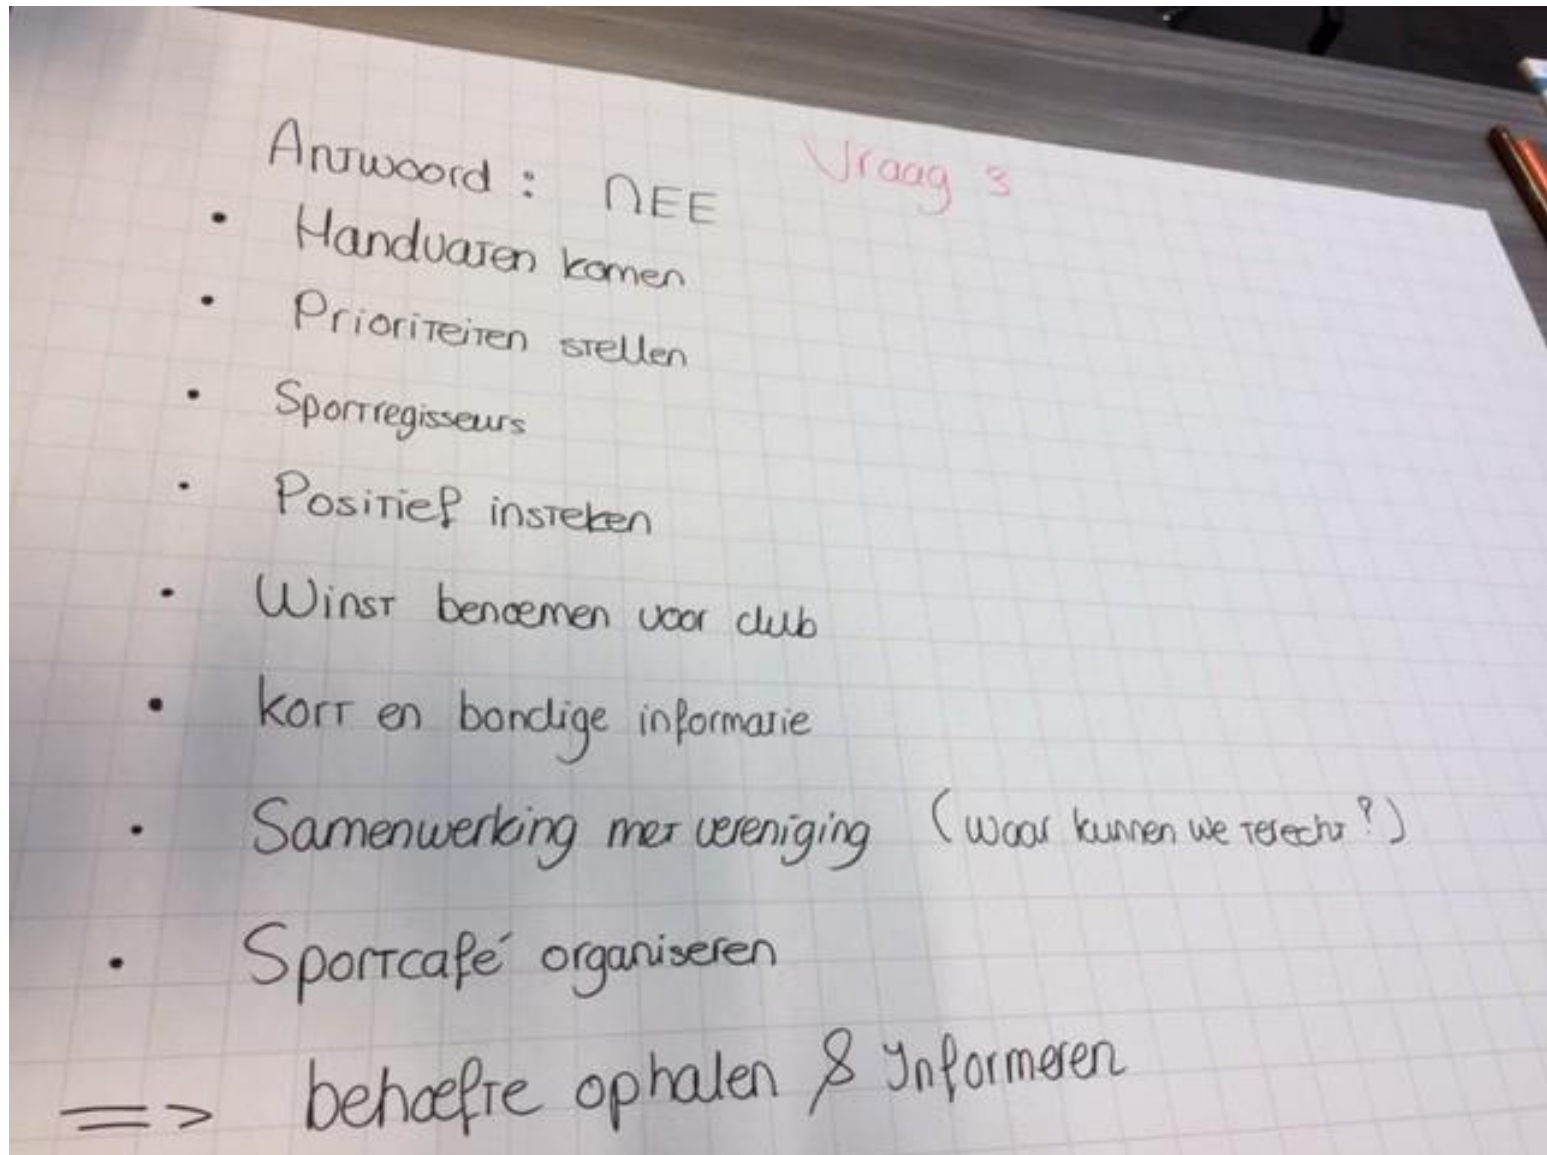 Vraag 3
Antwoord : NEE
• Handvaten komen
• Prioriteiten stellen
• Sportregisseurs
• Positief insteken
• Winst benoemen voor club
• kort en bondige informatie
• Samenwerking met vereniging (waar kunnen we terecht?)
• Sportcafé organiseren
=> behoefte ophalen & Informeren